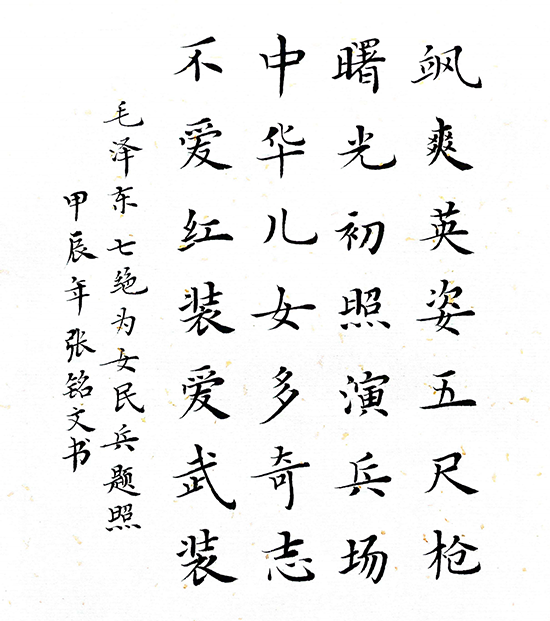 飒爽英姿五尺枪
曙光初照演兵场
中华儿女多奇志
不爱红装爱武装
毛泽东七绝为女民兵题照
甲辰年张铭文书